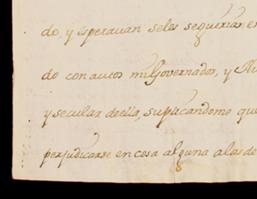 do, y esperavan se les seguirian, en
do con autos mi Governador, y
y secular de ella, suplicandome que
perjudicarse en cosa alguna a los de